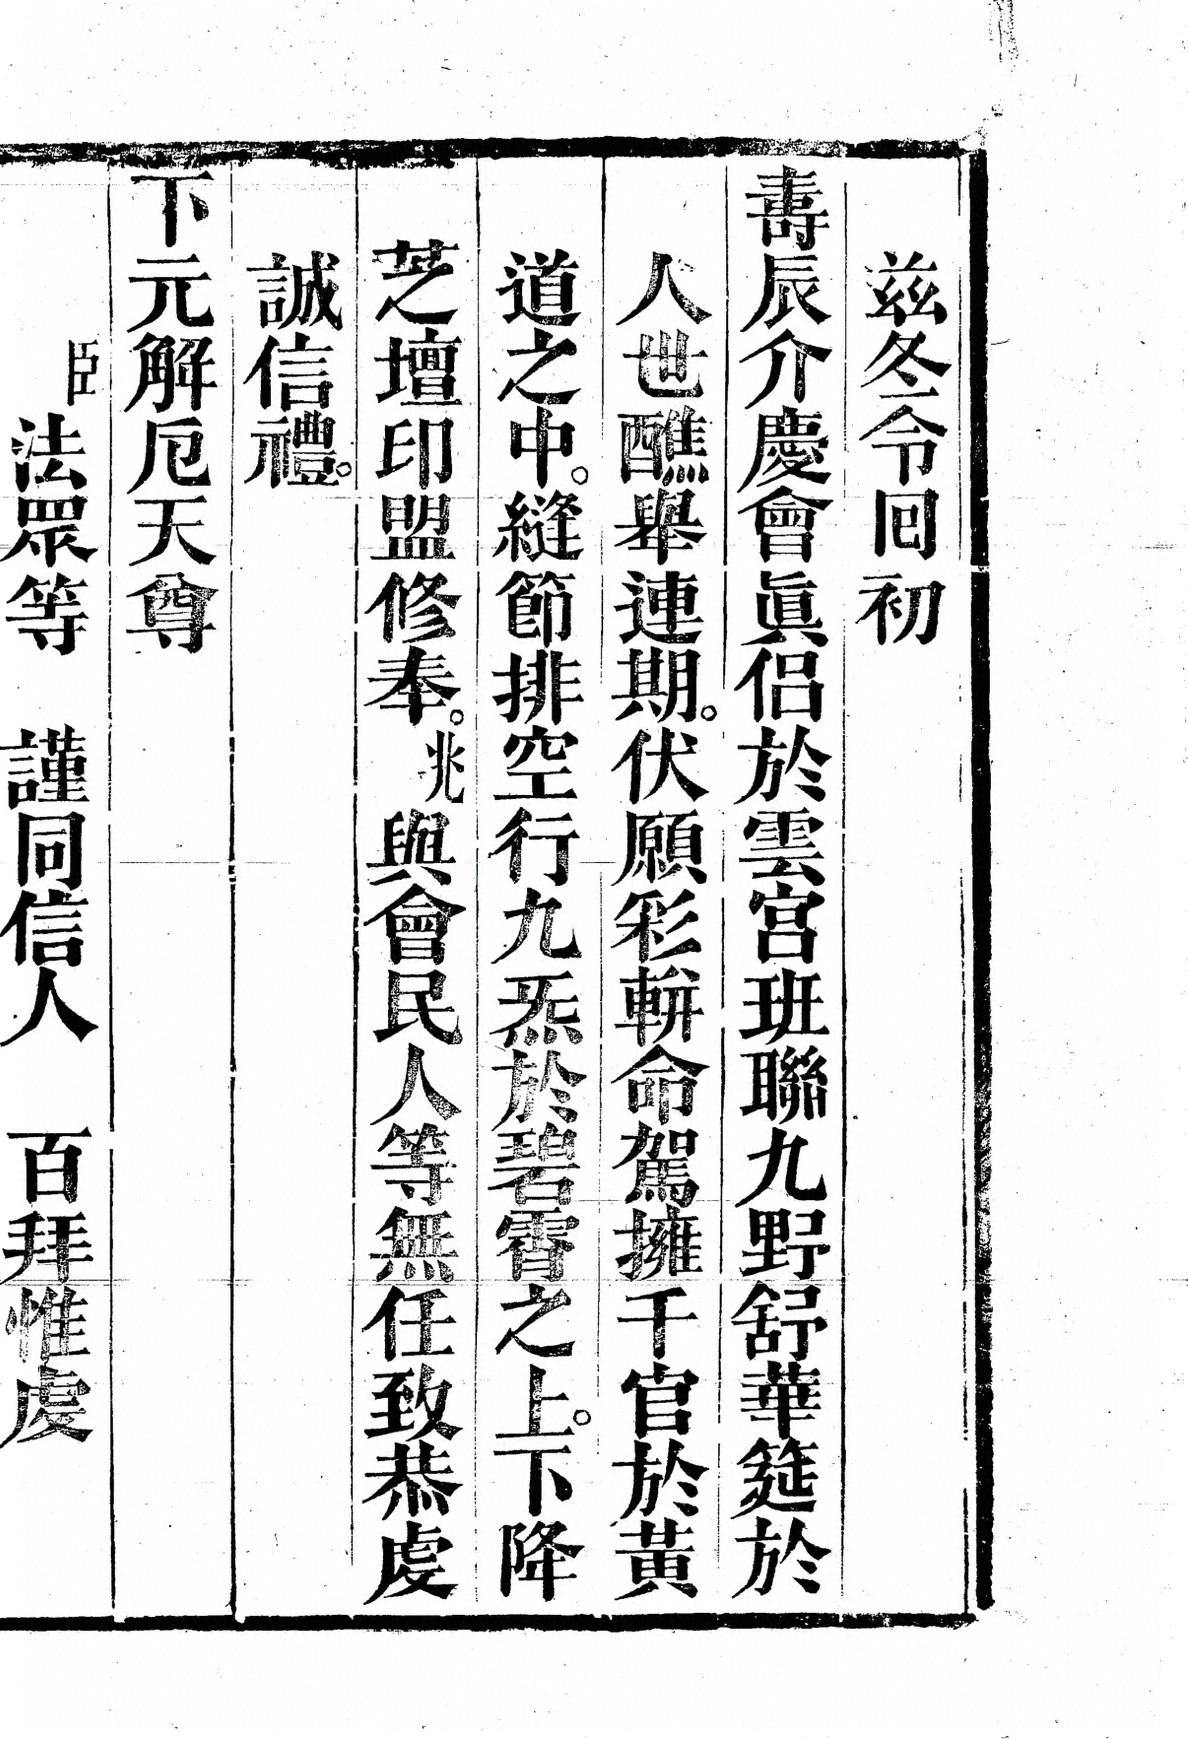 茲冬令囘初
壽辰介慶會眞侶於雲宮班聯九野舒華筵於
人世醮舉連期。伏願彩輧命駕擁千官於黃
道之中。縫節排空行九炁於碧霄之上。下降
芝壇印盟修奉。兆與會民人等無任致恭虔
誠信禮。
下元解厄天尊
臣法眾等　謹同信人　百拜惟虔